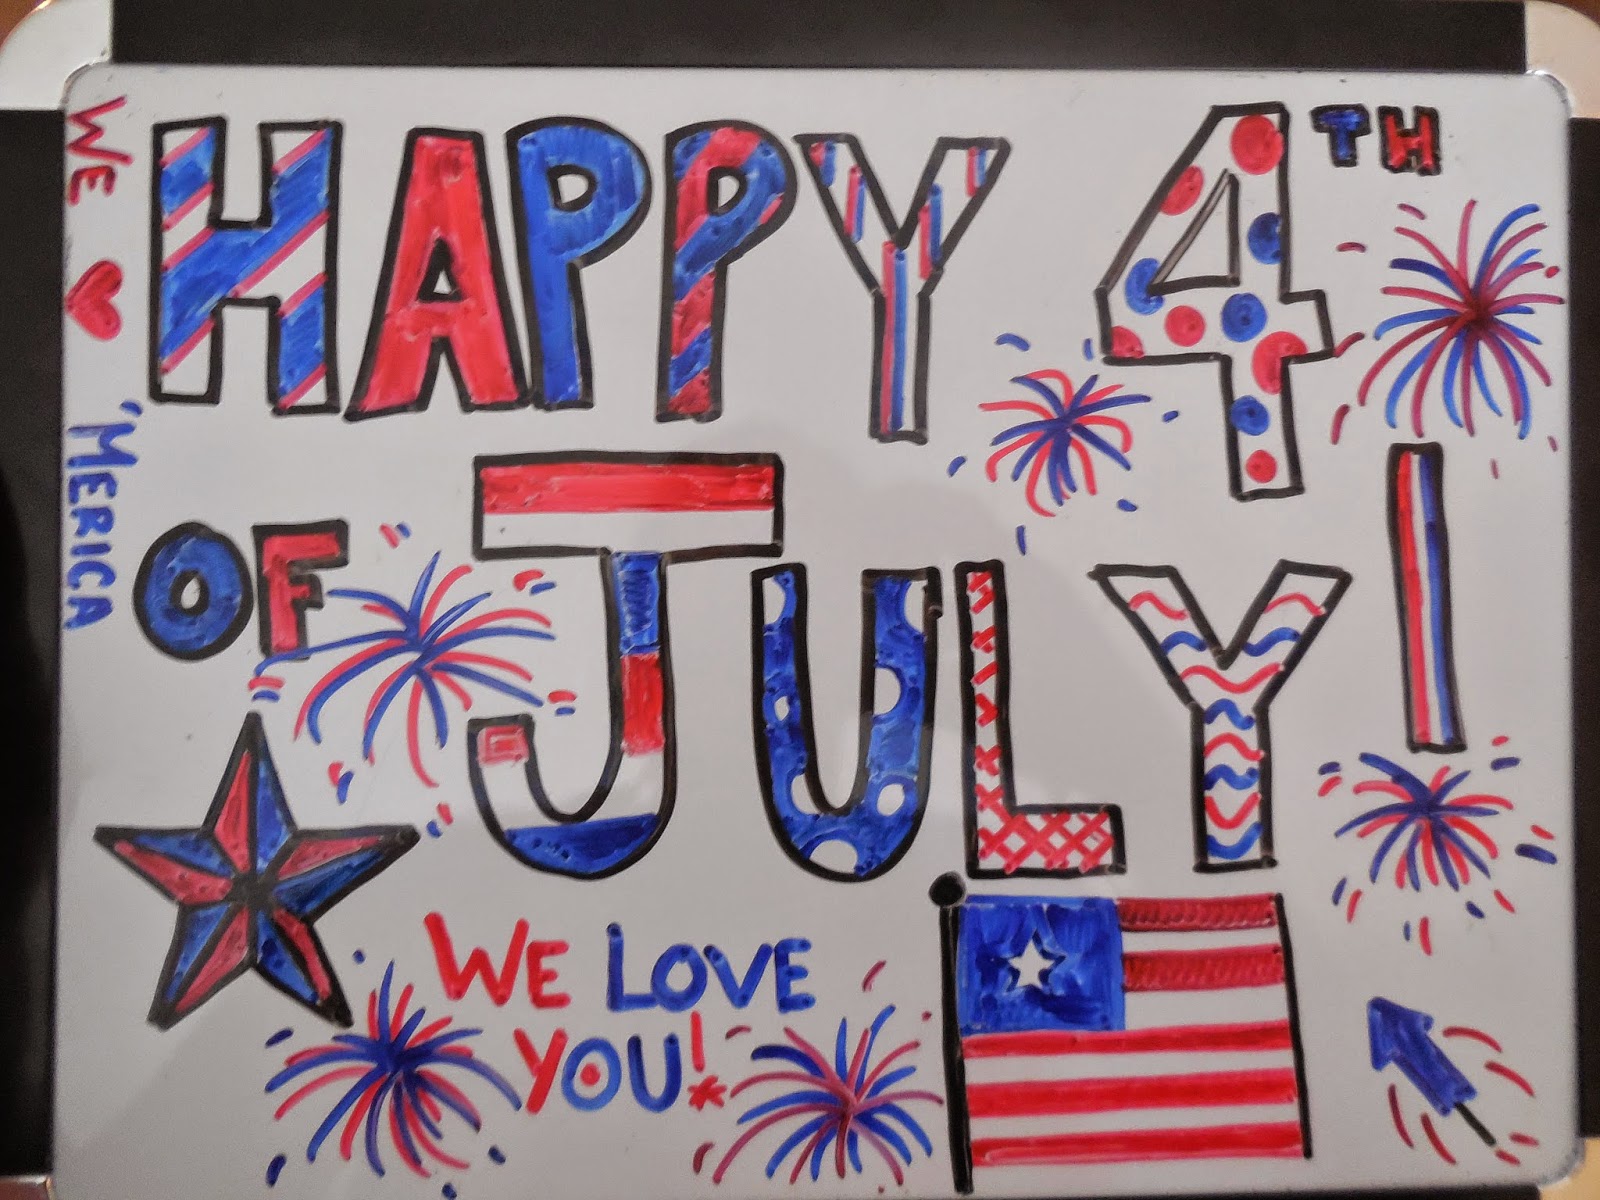 HAPPY 4TH
OF JULY!
WE LOVE
YOU!
WE ♥ 'MERICA